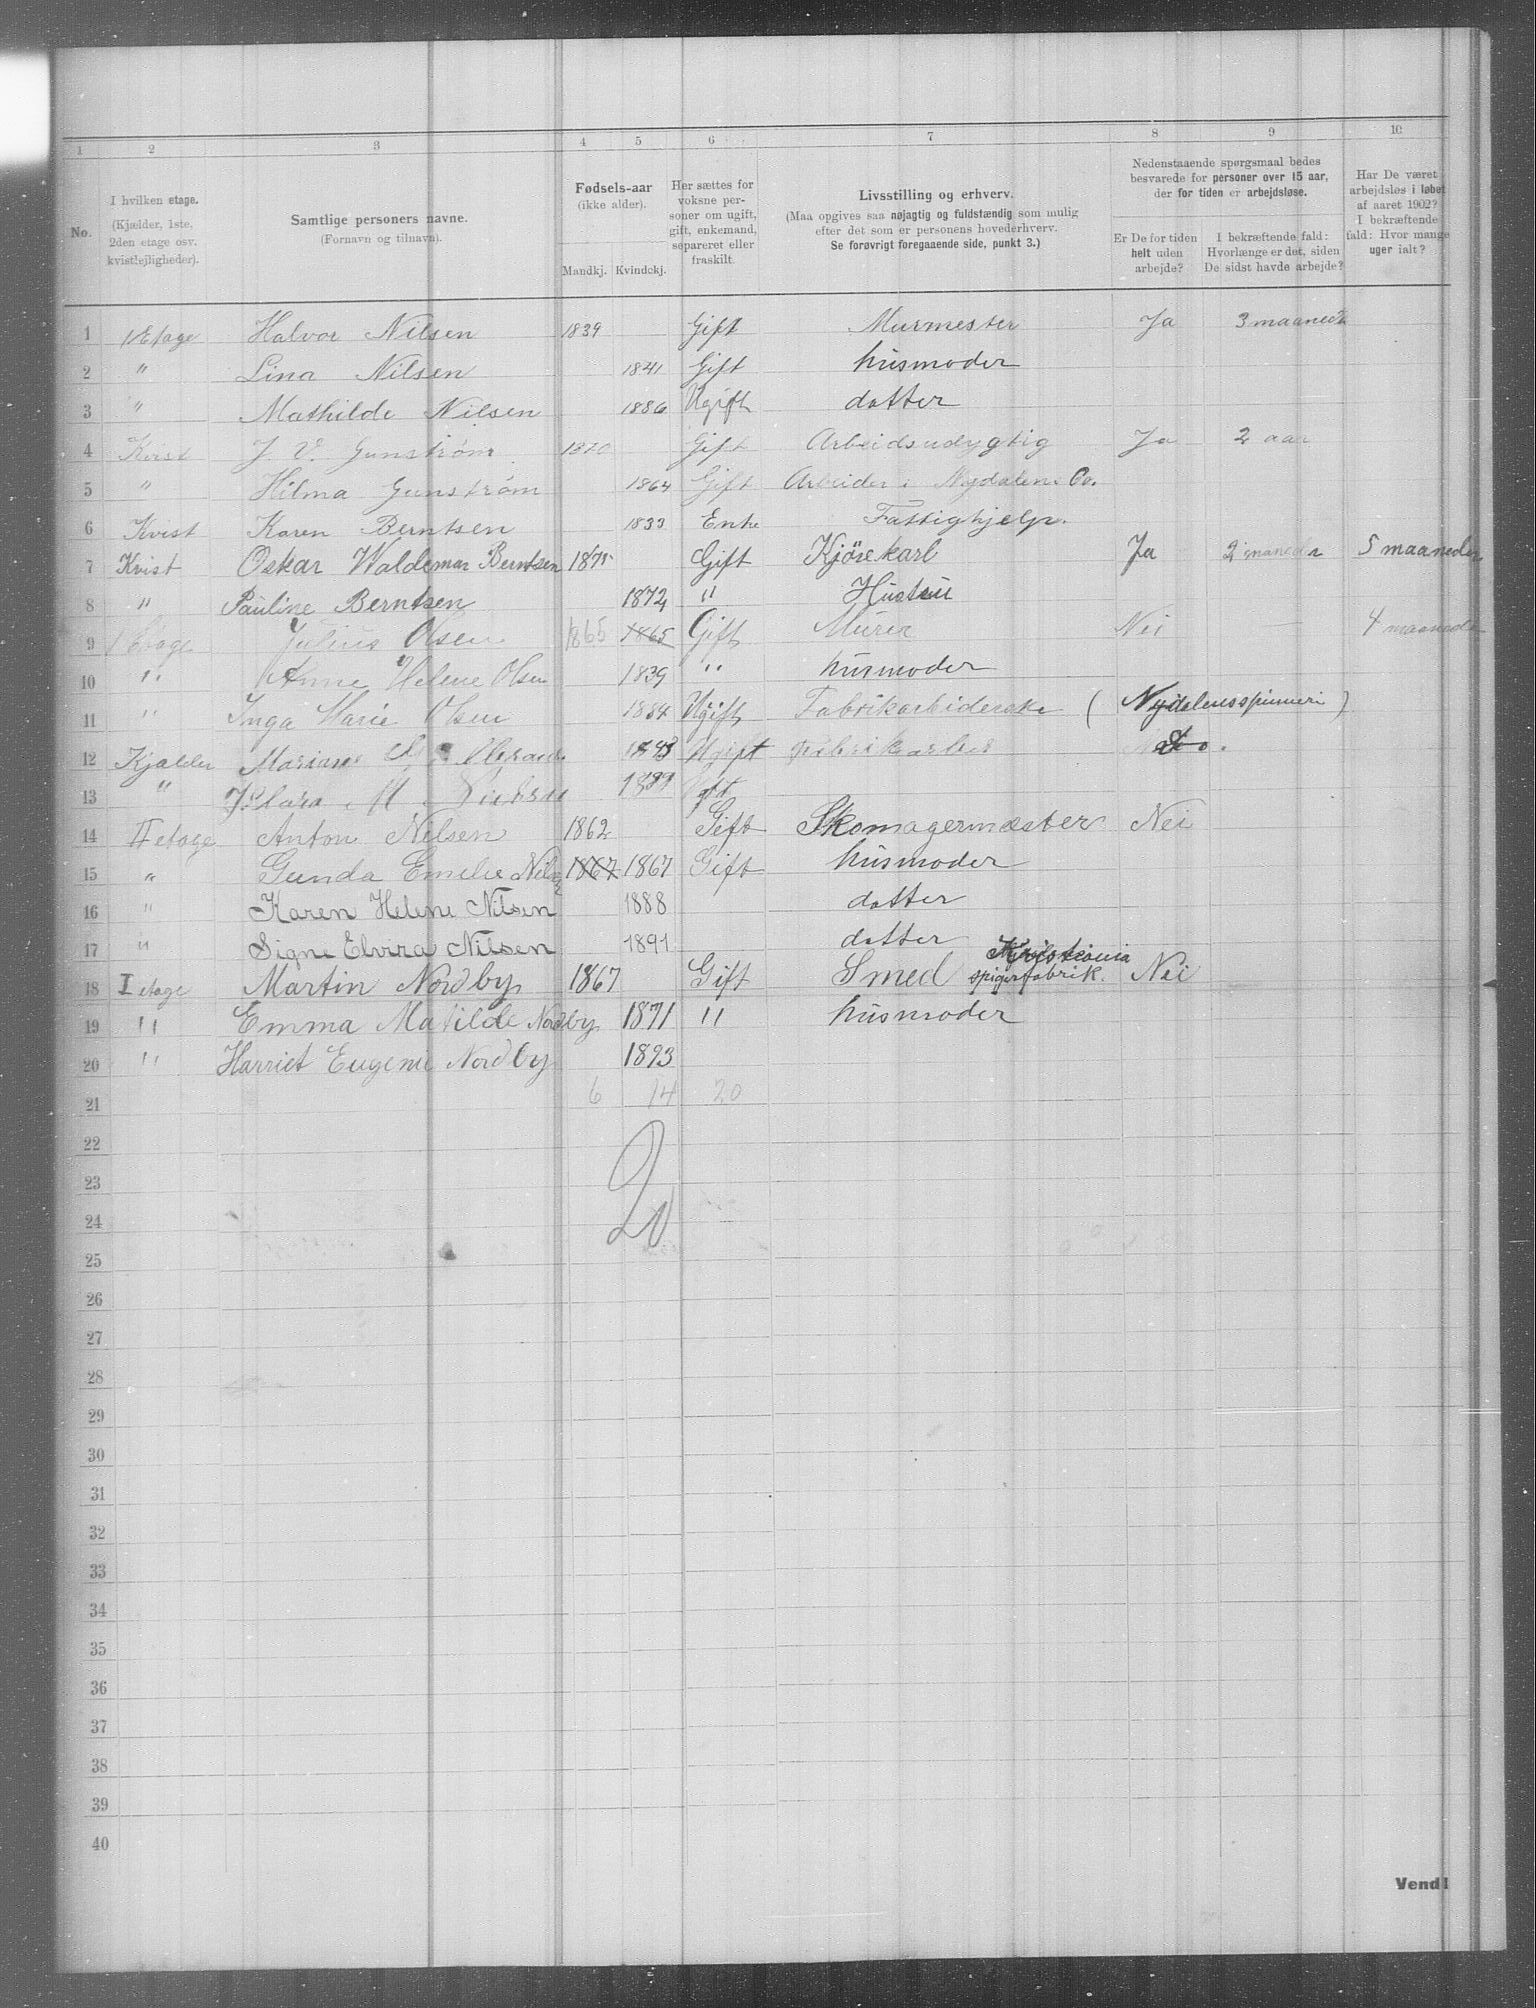 1 2 3 4 5 6 7 8 9 10
No.
I hvilken etage.
(Kjælder, 1ste,
2den etage osv.
kvistlejligheder).
Samtlige personers navne.
(Fornavn og tilnavn).
Fødsels-aar
(ikke alder).
Mandkj. Kvindekj.
Her sættes for
voksne per-
soner om ugift,
gift, enkemand,
separeret eller
fraskilt.
Livsstilling og erhverv.
(Maa opgives saa nøjagtig og fuldstændig som mulig
efter det som er personens hovederhverv.
Se forøvrigt foregaaende side, punkt 3.)
Nedenstaaende spørgsmaal bedes
besvarede for personer over 15 aar,
der for tiden er arbejdsløse.
Er De for tiden
helt uden
arbejde?
I bekræftende fald:
Hvorlænge er det, siden
De sidst havde arbejde?
Har De været
arbejdsløs i løbet
af aaret 1902?
I bekræftende
fald: Hvor mange
uger ialt?
1 1 Etage Halvor Nilsen 1839 Gift Murmester Ja 3 maaneder
2 " Lina Nilsen 1841 Gift husmoder
3 " Mathilde Nilsen 1886 Ugift datter
4 Kvist J. V. Gunstrøm 1870 Gift Arbeidsudygtig Ja 2 aar
5 " Hilma Gunstrøm 1864 Gift Arbeider i Nydalens Co.
6 Kvist Karen Berntsen 1833 Enke Fattighjelp.
7 Kvist Oskar Waldemar Berntsen 1875 Gift Kjørekarl Ja 2 maneder 5 maaneder
8 " Pauline Berntsen 1872 " Hustru
9 1 Etage Julius Olsen 1865 1865 Gift Murer Nei — 4 maaneder
10 " Anne Helene Olsen 1839 " husmoder
11 " Inga Marie Olsen 1884 Ugift Fabrikarbiderske ( Nydalens spinneri )
12 Kjælder Ugift
13 " Klara M
14 II etage Anton Nilsen 1862 Gift Skomagermæster Nei
15 " Gunda Emelie Nilsen 1867 1867 Gift husmoder
16 " Karen Helene Nilsen 1888 datter
17 " Signe Elvira Nilsen 1891 datter
18 I etage Martin Nordby 1867 Gift Smed Kristiania spigerfabrik. Nei
19 " Emma Matilde Nordby 1871 " husmoder
20 " Harriet Eugenie Nordby 1893
21 6 14 20
22
23 20
24
25
26
27
28
29
30
31
32
33
34
35
36
37
38
39
40
Vend!